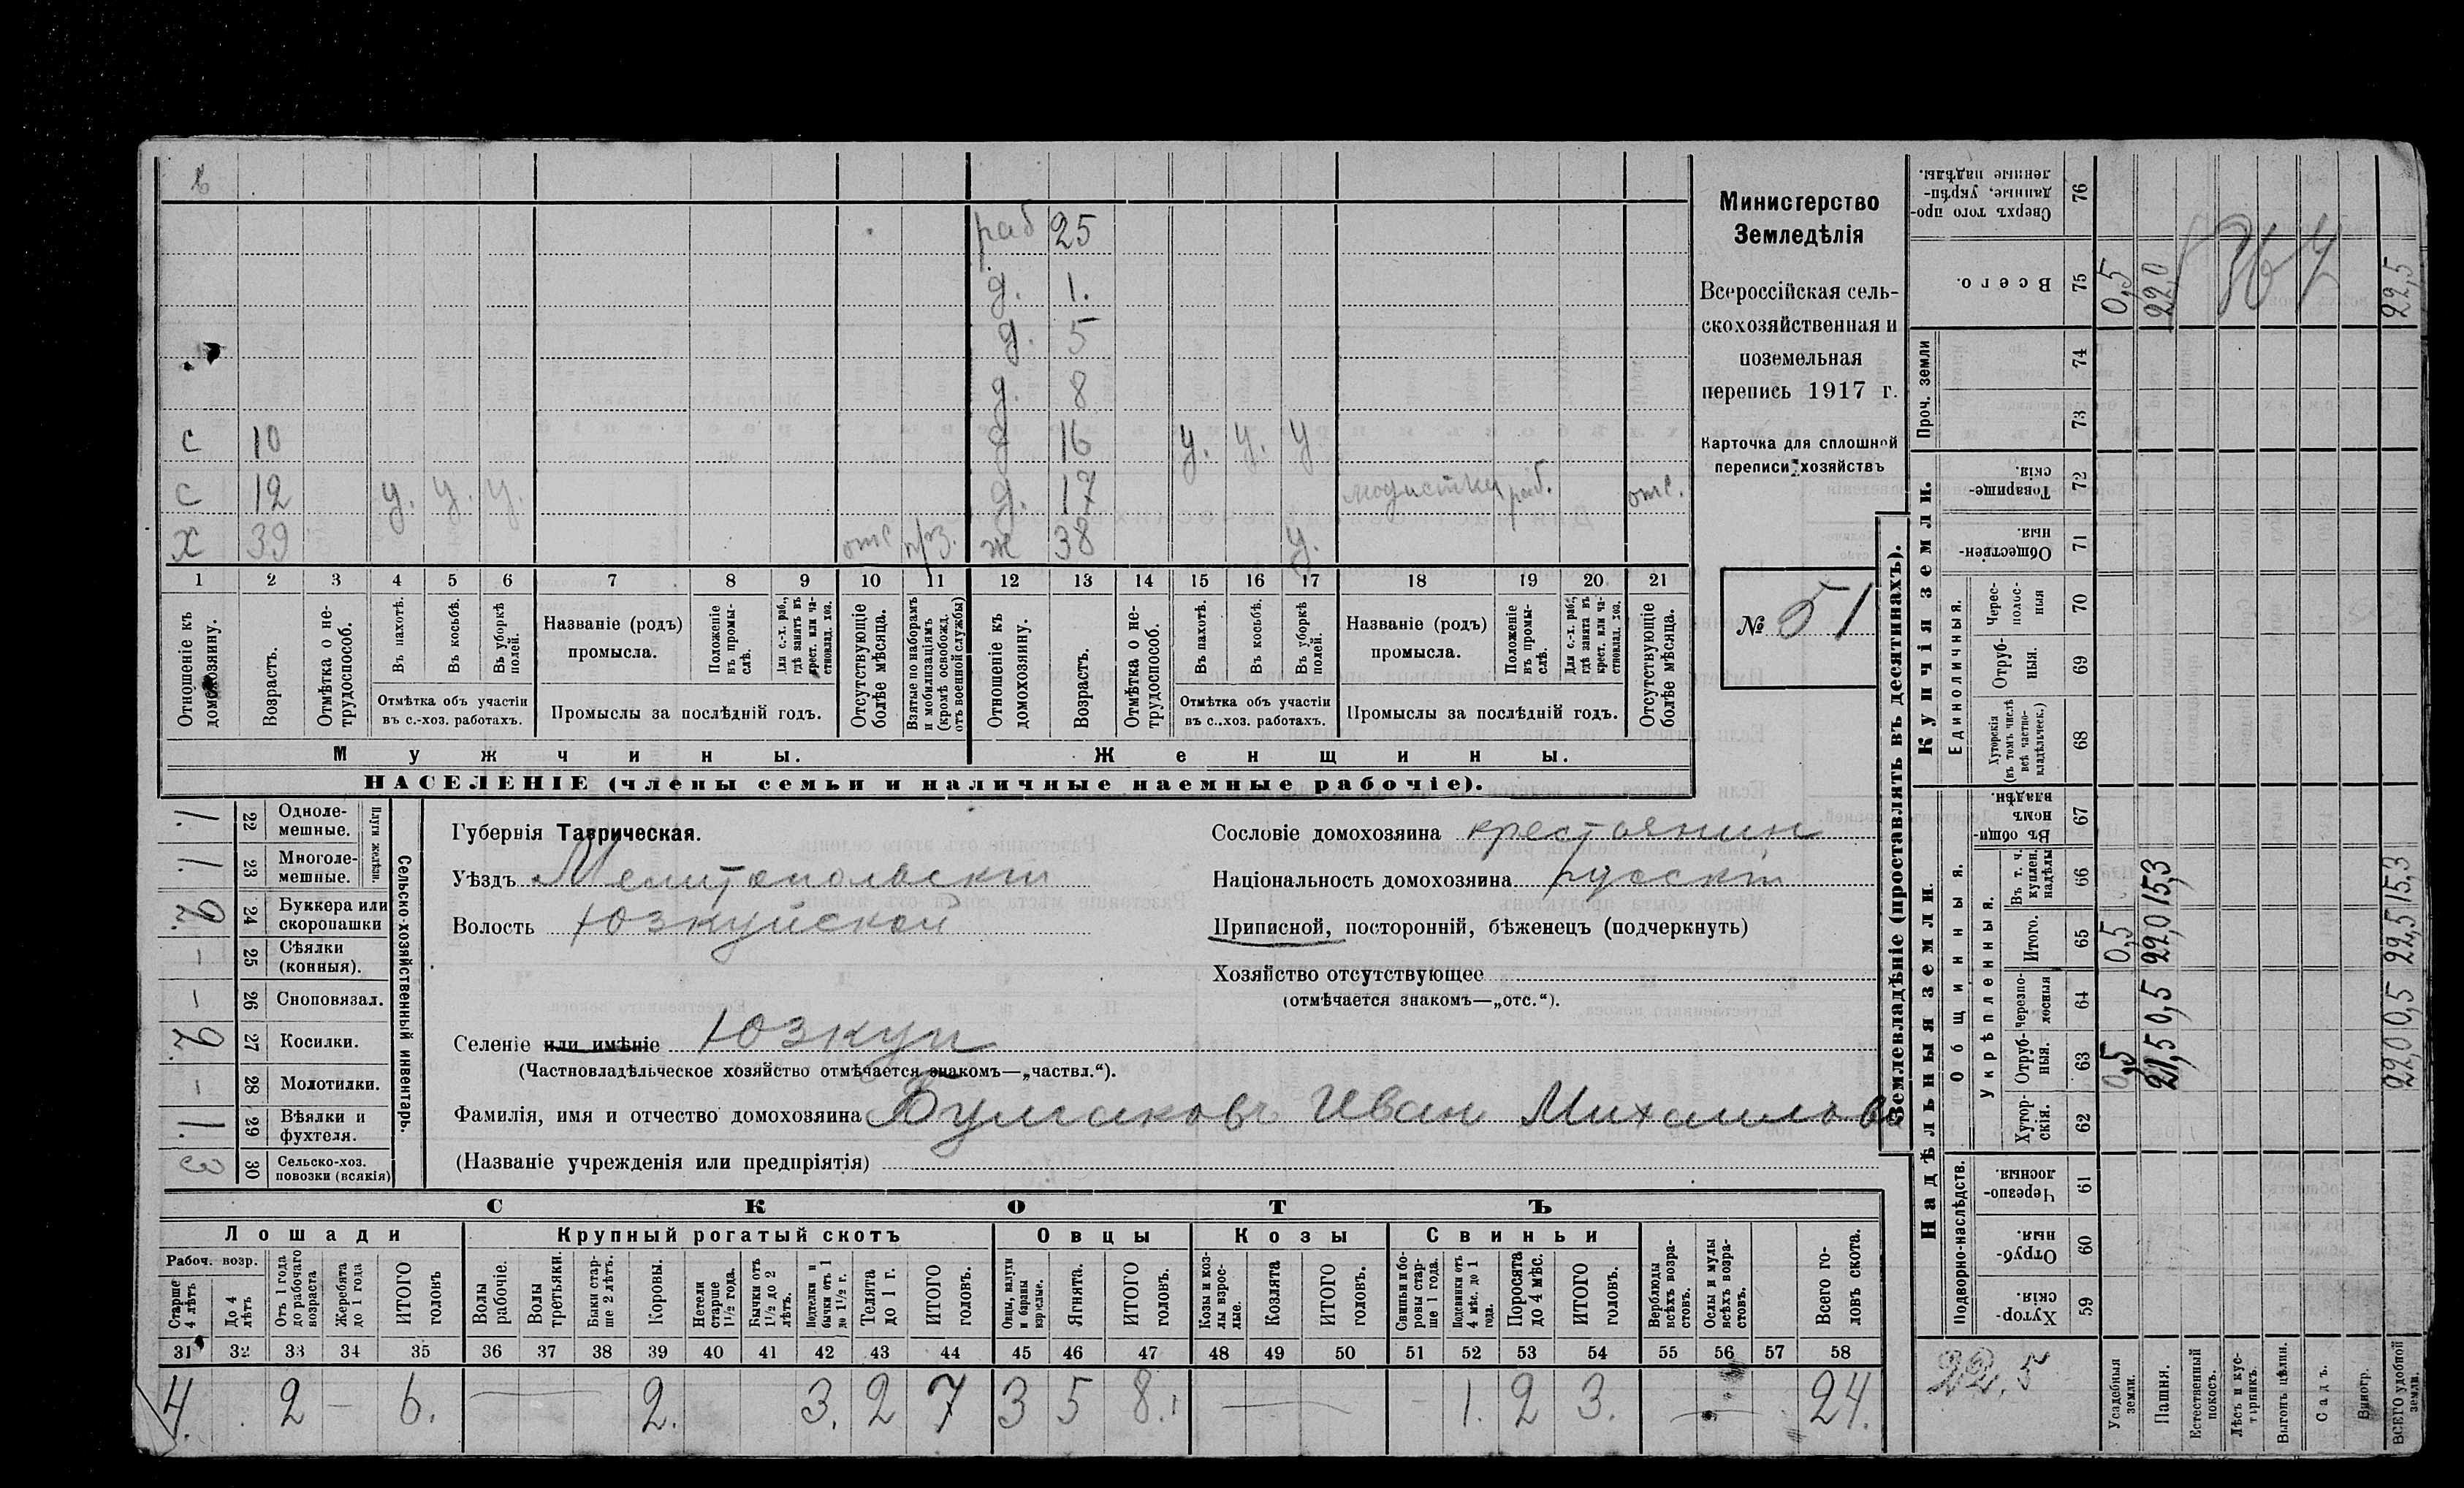 раб 25
д. 1.
д. 5
д. 8
с 10 д 16 у. у. у
с 12 у. у. у. д. 17 модистка раб. отс.
х 39 отс ж 38 у.
1 2 3 4 5 6 7 8 9 10 11 12 13 14 15 16 17 18 19 20 21
Отношеніе къ домохозяину.
Возрастъ.
Отмѣтка о нетрудоспособ.
Въ пахотѣ.
Въ косьбѣ.
Въ уборкѣ полей.
Отмѣтка объ участіи въ с.-хоз. работахъ.
Названіе (родъ) промысла.
Положеніе въ промыслѣ.
Для с.-х. раб., гдѣ занятъ въ крест. или частновлад. хоз.
Промыслы за послѣдній годъ.
Отсутствующіе болѣе мѣсяца.
Взятые по наборамъ и мобилизаціямъ (кромѣ освобожд. отъ военной службы)
Отношеніе къ домохозяину.
Возрастъ.
Отмѣтка о нетрудоспособ.
Въ пахотѣ.
Въ косьбѣ.
Въ уборкѣ полей.
Отмѣтка объ участіи въ с.-хоз. работахъ.
Названіе (родъ) промысла.
Положеніе въ промыслѣ.
Для с.-х. раб., гдѣ занята въ крест. или частновлад. хоз.
Промыслы за послѣдній годъ.
Отсутствующіе болѣе мѣсяца.
Мужчины. Женщины.
НАСЕЛЕНІЕ (члены семьи и наличные наемные рабочіе).
Министерство
Земледѣлія
Всероссійская сель-
скохозяйственная и
поземельная
перепись 1917 г.
Карточка для сплошной
переписи хозяйствъ
№ 51
1. 22 Одноле-мешные.
1. 23 Многоле-мешные.
Плуги желѣзн.
2. 24 Буккера или скоропашки
– 25 Сѣялки (конныя).
– 26 Сноповязал.
2. 27 Косилки.
– 28 Молотилки.
1. 29 Вѣялки и фухтеля.
3 30 Сельско-хоз. повозки (всякія)
Сельско-хозяйственный инвентарь.
Губернія Таврическая.
Уѣздъ Мелитопольскій
Волость Юзкуйской
Селеніе или имѣніе Юзкуи
(Частновладѣльческое хозяйство отмѣчается знакомъ—„частвл.“).
Фамилія, имя и отчество домохозяина Булгаковъ Иван Михаиловъ
(Названіе учрежденія или предпріятія)
Сословіе домохозяина крестьянин
Національность домохозяина русскій
Приписной, посторонній, бѣженецъ (подчеркнуть)
Хозяйство отсутствующее
(отмѣчается знакомъ—„отс.“).
СКОТЪ
Лошади Крупный рогатый скотъ Овцы Козы Свиньи
Рабоч. возр.
Старше 4 лѣтъ
До 4 лѣтъ
Отъ 1 года до рабочаго возраста
Жеребята до 1 года
ИТОГО головъ
Волы рабочіе.
Волы третьяки.
Быки старше 2 лѣтъ.
Коровы.
Нетели старше 1½ года.
Бычки отъ 1½ до 2 лѣтъ.
Подтелки и бычки отъ 1 до 1½ г.
Телята до 1 г.
ИТОГО головъ.
Овцы, валухи и бараны взрослые.
Ягнята.
ИТОГО головъ.
Козы и козлы взрослые.
Козлята
ИТОГО головъ.
Свиньи и боровы старше 1 года.
Подсвинки отъ 4 мѣс. до 1 года.
Поросята до 4 мѣс.
ИТОГО головъ.
Верблюды всѣхъ возрастовъ.
Ослы и мулы всѣхъ возрастовъ.
Всего головъ скота.
31 32 33 34 35 36 37 38 39 40 41 42 43 44 45 46 47 48 49 50 51 52 53 54 55 56 57 58
4. 2 – 6. 2. 3. 2 7 3 5 8. 1. 2 3. 24.
Землевладѣніе (проставлять въ десятинахъ).
Купчія земли.
Надѣльныя земли.
Сверхъ того проданные, укрѣпленные надѣлы. 76
Всего. 75 0,5 22,0 22,5
Проч. земли 74 73
Товарищескія. 72
Общественныя. 71
Единоличныя.
Чересполосныя 70
Отрубныя. 69
Хуторскія (въ томъ числѣ всѣ частновладѣльческ.) 68
Общинныя.
Въ общинномъ владѣн. 67
Укрѣпленныя.
Въ т. ч. куплен. надѣлы 66 15,3 15,3
Итого. 65 0,5 22,0 22,5
Черезполосныя 64 0,5 0,5
Отрубныя. 63 0,5 21,5 22,0
Хуторскія. 62
Подворно-наслѣдств.
Черезполосныя. 61
Отрубныя. 60
Хуторскія. 59
22,5
Усадебная земли.
Пашня.
Естественный покосъ.
Лѣсъ и кустарникъ.
Выгонъ цѣлин.
Садъ.
Виногр.
ВСЕГО удобной земли.